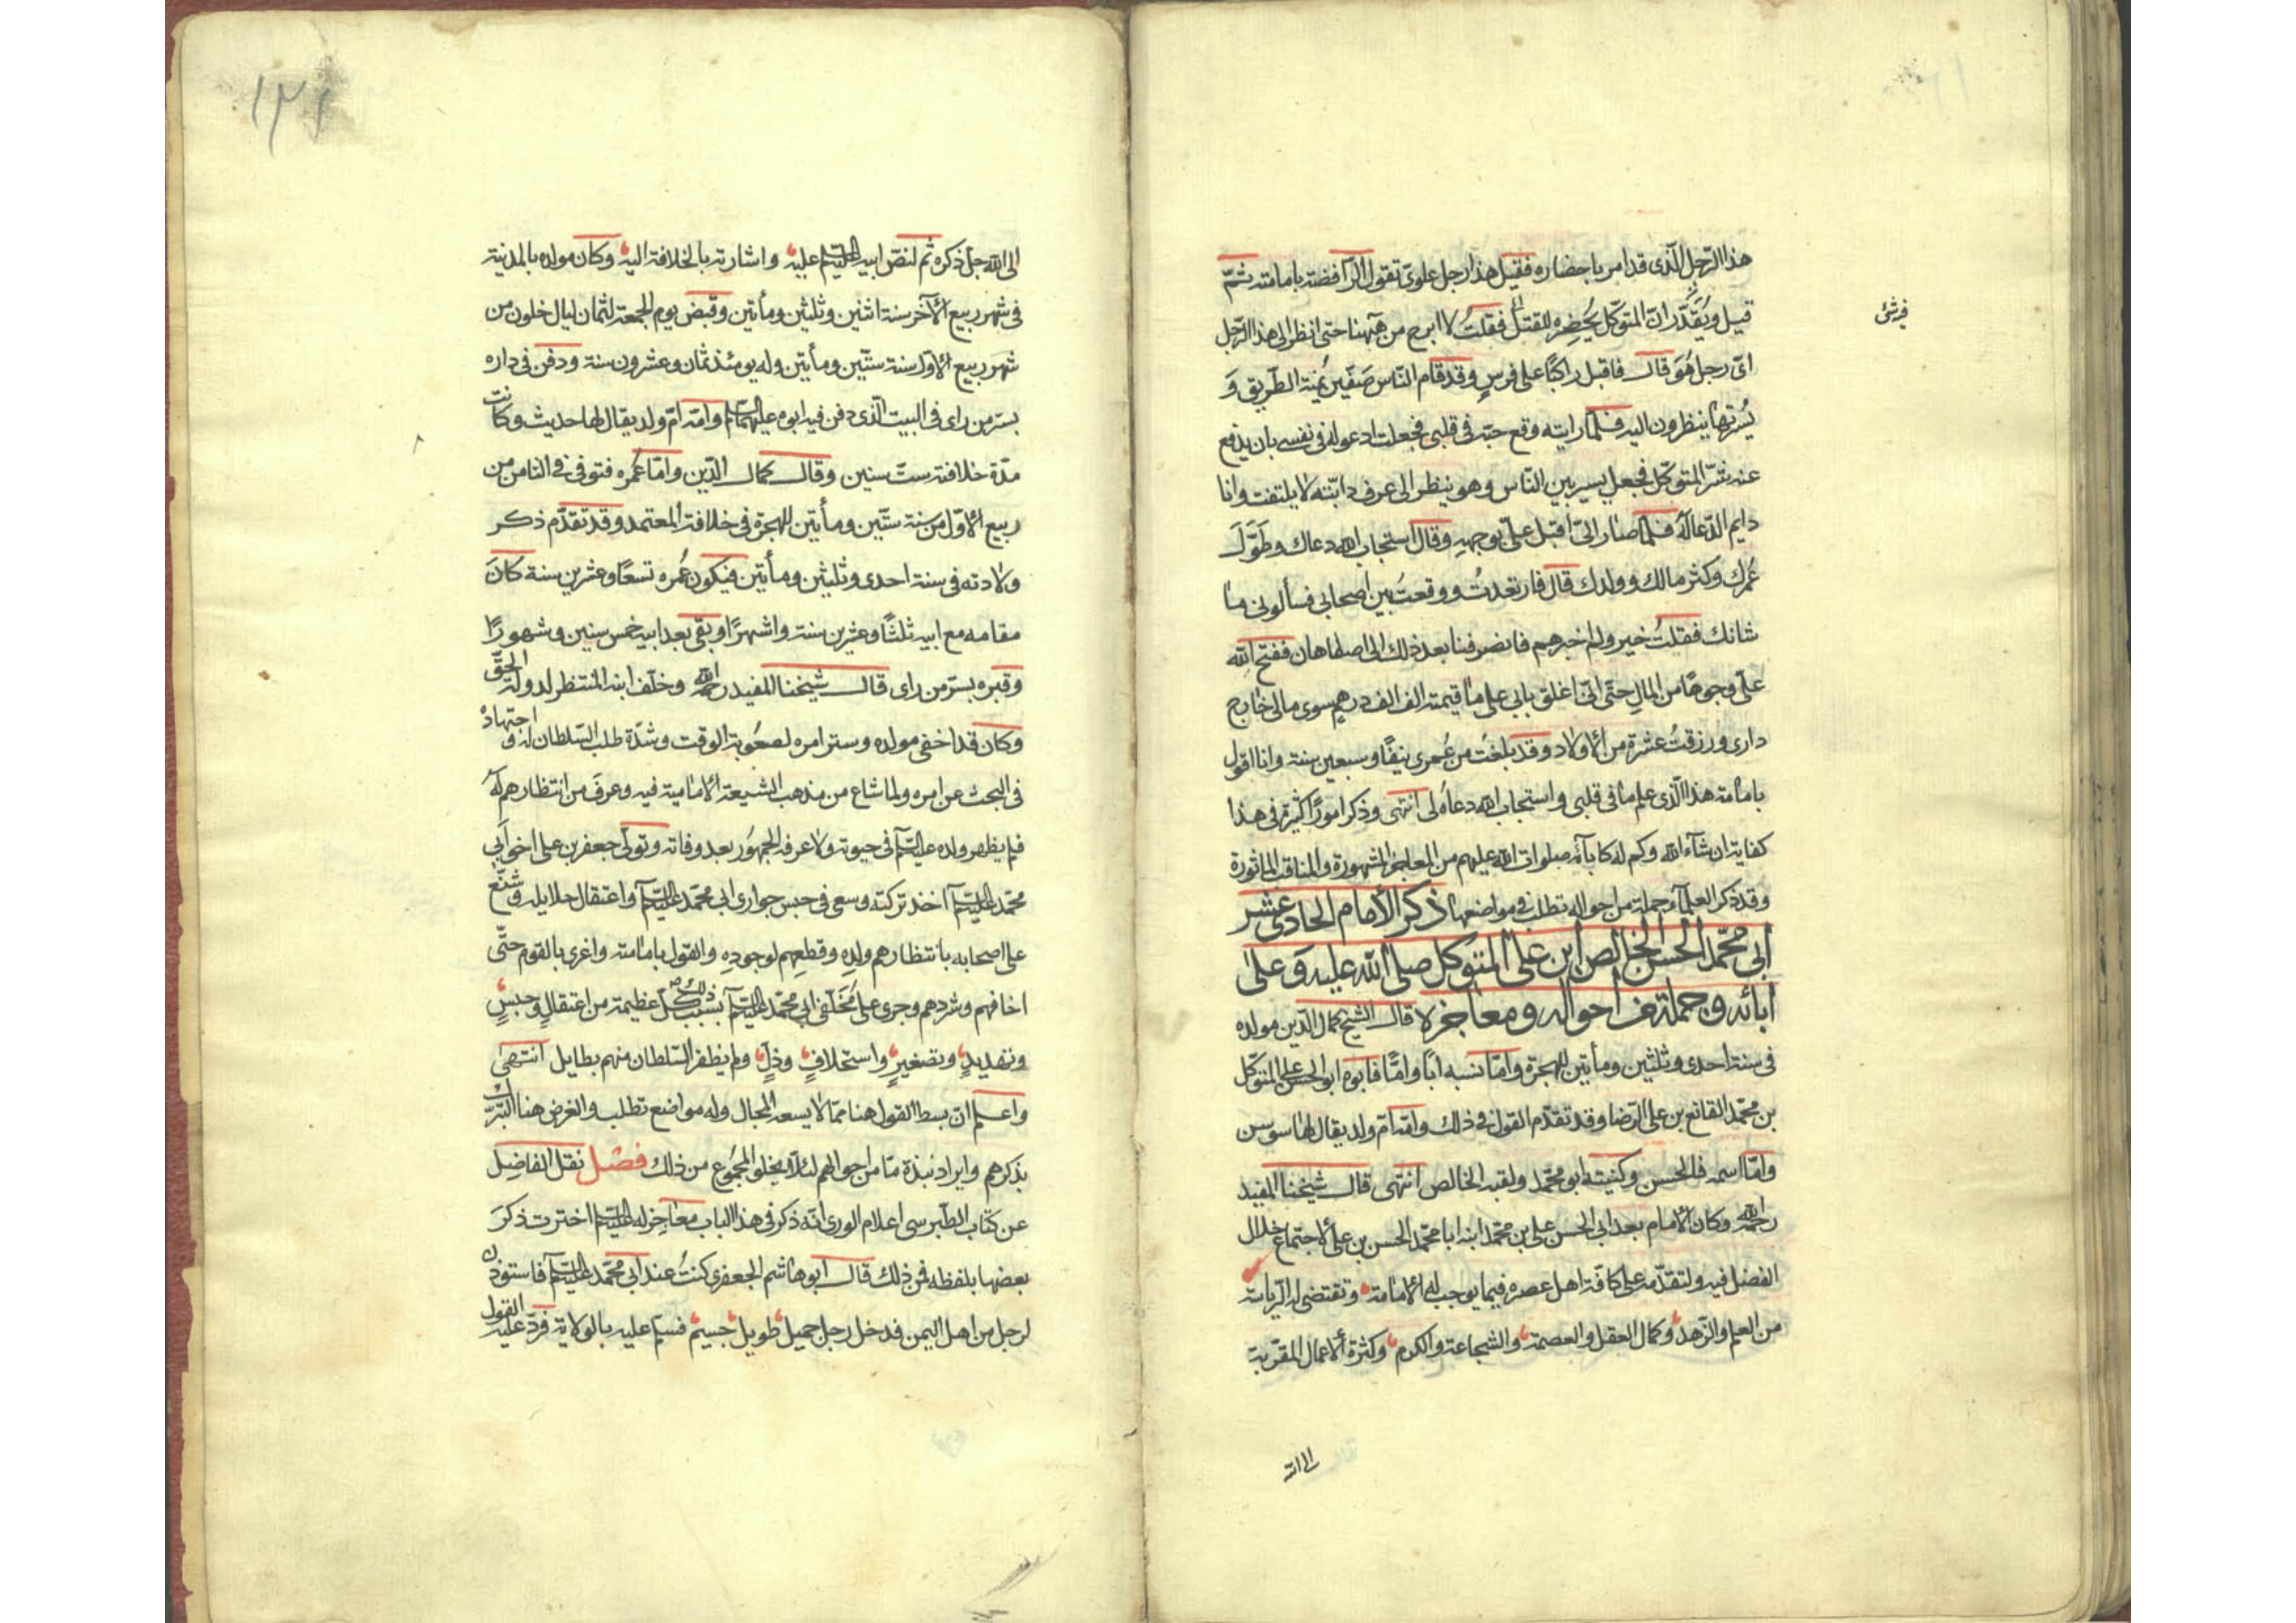 هذا الرّجل الّذى قد امر باحضاره فقيل هذا رجل علوىّ تقول الرّافضة بامامته ثمّ
قيل ويُقدّر انّ المتوكّل يُحضِره للقتل فقلتُ لا ابرح من ههنا حتى انظر الى هذا الرّجل
اىّ رجل هُوَ قال فاقبل راكبًا على فرسٍ وقد قام النّاس صَفّين يُمنة الطّريق وَ
يُسرتها ينظرون اليه فلمّا رايته وقع حبّه فى قلبى فجعلت ادعو له فى نفسى بان يدفع
عنه شرّ المتوكّل فجعل يسير بين النّاس وهو ينظر الى عرف دابّته لا يلتفت وانا
دايم الدّعا له فلمّا صار الىّ اقبل علىّ بوجهه وقال استجاب الله دعاك وطوّلَ
عُمرك وكثر مالك وولدك قال فارتعدتُ ووقعتُ بين اصحابى فسألونى ما
شانك فقلتُ خير ولم اخبرهم فانصرفنا بعد ذلك الى اصفاهان ففتح الله
علىّ وجوهًا من المال حتّى انّى اغلق بابى على ما قيمته الف الف درهم سوى مالى خارج
دارى ورزقتُ عشرة من الاولاد وقد بلغتُ من عُمرى نيفًا وسبعين سنة وانا اقول
بامامة هذا الّذى علم ما فى قلبى واستجاب الله دعاه لى انتهى وذكر امورًا كثيرة فى هذا
كفاية ان شآء الله وكم له كابآئه صلوات الله عليهم من المعاجز المشهورة والمناقب الماثورة
وقد ذكر العلمآء جملة من احواله تطلب فى مواضعها ذكر الأمام الحادى عشر
ابى محمّد الحسن الخالص ابن على المتوكل صلى الله عليه وعلى
ابائه وجملة من احواله ومعاجزه قال الشيخ كمال الدّين مولده
فى سنة احدى وثلثين ومأتين للهجرة وامّا نسبه ابًا وامًّا فابوه ابو الحسن على المتوكّل
بن محمّد القانع بن على الرّضا وقد تقدّم القول فى ذلك وامّه امّ ولد يقال لها سوسن
وامّا اسمه فالحسن وكنيته ابو محمّد ولقبه الخالص انتهى قال شيخنا المفيد
رحمه الله وكان الامام بعد ابى الحسن على بن محمّد ابنه ابا محمّد الحسن بن على لاجتماع خلال
الفضل فيه ولتقدّمه على كافّة اهل عصره فيما يوجب له الامامة وتقتضى له الرّياسة
من العلم والزّهد وكمال العقل والعصمة والشجاعة والكرم وكثرة الاعمال المقرّبة
الى الله
١٢١
الى الله جل ذكره ثم لنصّ ابيه عليه السلام عليه واشارته بالخلافة اليه وكان مولده بالمدينة
فى شهر ربيع الآخر سنة اثنين وثلثين ومأتين وقبض يوم الجمعة لثمان ليال خلون من
شهر ربيع الاول سنة ستّين ومأتين وله يومئذ ثمان وعشرون سنة ودفن فى داره
بسرّ من راى فى البيت الّذى دفن فيه ابوه عليهما السلام وامّه امّ ولد يقال لها حديث وكانت
مدّة خلافته ستّ سنين وقال كمال الدّين وامّا عُمره فتوفى فى الثامن من
ربيع الاوّل من سنة ستّين ومأتين للهجرة فى خلافة المعتمد وقد تقدّم ذكر
ولادته فى سنة احدى وثلثين ومأتين فيكون عُمره تسعًا وعشرين سنة كانَ
مقامه مع ابيه ثلثًا وعشرين سنة واشهرًا وبقى بعد ابيه خمس سنين وشهورًا
وقبره بسرّ من راى قال شيخنا المفيد رحمه الله وخلّف ابنه المنتظر لدولة الحقّ
وكان قد اخفى مولده وستر امره لصعُوبة الوقت وشدّة طلب السّلطان له واجتهاده
فى البحث عن امره ولما شاع من مذهب الشيعة الامامية فيه وعرف من انتظارهم له
فلم يظهر ولده عليه السلام فى حيوته ولا عرفه الجمهُور بعد وفاته وتولّى جعفر بن على اخو ابى
محمّد عليه السلام اخذ تركته وسعى فى حبس جوارى ابى محمّد عليه السلام واعتقال حلايله وشنّع
على اصحابه بانتظارهم ولده وقطعهم لوجوده والقول بامامته واغرى بالقوم حتّى
اخافهم وشردهم وجرى على مُخلّفى ابى محمّد عليه السلام بسبب ذلك كلّ عظيمة من اعتقالٍ وحبسٍ
وتهديدٍ وتصغيرٍ واستخلافٍ وذلٍّ ولم يظفر السّلطان منهم بطايل انتهى
واعلم ان بسط القول هنا ممّا لا يسعه المجال وله مواضع تطلب والغرض هنا التبّرك
بذكرهم وايراد نبذة مّا من احوالهم لئلّا يخلو المجمُوع من ذلك فصل نقل الفاضل
عن كتاب الطّبرسى اعلام الورى انّه ذكر فى هذا الباب معاجز له عليه السلام اخترت ذكرَ
بعضها بلفظه فمن ذلك قال ابو هاشم الجعفرى كنتُ عند ابى محمّد عليه السلام فاستوذن
لرجل من اهل اليمن فدخل رجل جميل طويل جسيم فسلم عليه بالولاية فردّ عليه القول